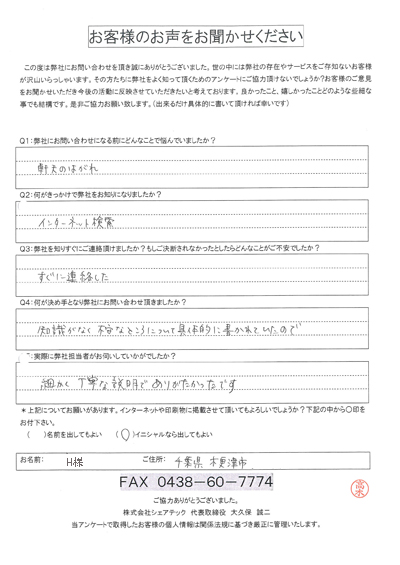 お客様のお声をお聞かせください
この度は弊社にお問い合わせを頂き誠にありがとうございました。世の中には弊社の存在やサービスをご存知ないお客様
が沢山いらっしゃいます。その方たちに弊社をよく知って頂くためのアンケートにご協力頂けないでしょうか?お客様のご意見
をお聞かせいただき今後の活動に反映させていただきたいと考えております。良かったこと、嬉しかったことどのような些細な
事でも結構です。是非ご協力お願い致します。(出来るだけ具体的に書いて頂ければ幸いです)
Q1:弊社にお問い合わせになる前にどんなことで悩んでいましたか?
軒天のはがれ
Q2:何がきっかけで弊社をお知りになりましたか?
インターネット検索
Q3:弊社を知りすぐにご連絡頂けましたか?もしご決断されなかったとしたらどんなことがご不安でしたか?
すぐに連絡した
Q4:何が決め手となり弊社にお問い合わせ頂きましたか?
知識がなく不安なところについて具体的に書かれていたので
:実際に弊社担当者がお伺いしていかがでしたか?
細かく丁寧な説明でありがたかったです
*上記についてお願いがあります。インターネットや印刷物に掲載させて頂いてもよろしいでしょうか?下記の中から〇印を
お付下さい。
( )名前を出してもよい (〇)イニシャルなら出してもよい
お名前: H様 ご住所: 千葉県 木更津市
FAX 0438-60-7774
ご協力ありがとうございました。
株式会社シェアテック 代表取締役 大久保 誠二
当アンケートで取得したお客様の個人情報は関係法規に基づき厳正に管理いたします。